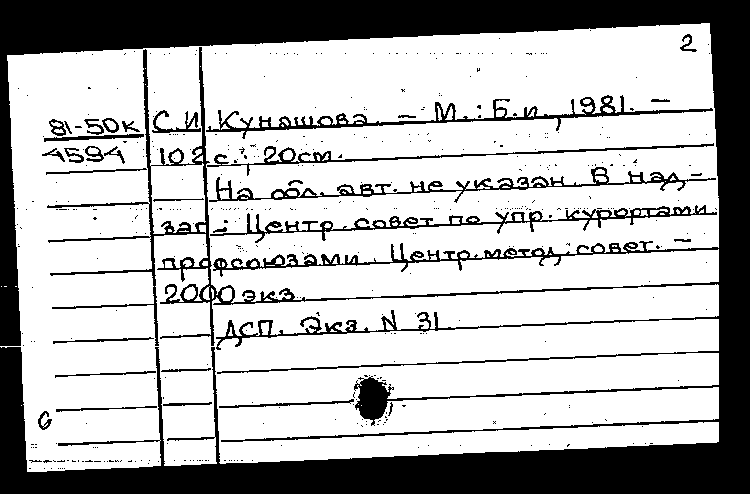 2
81-50к С.И. Кунашова. – М.: Б.и., 1981. –
4594 102 с.; 20см.
На обл. авт. не указан. В над-
заг.: Центр. совет по упр. курортами
профсоюзами. Центр. метод. совет. –
2000 экз.
ДСП. Экз. N 31